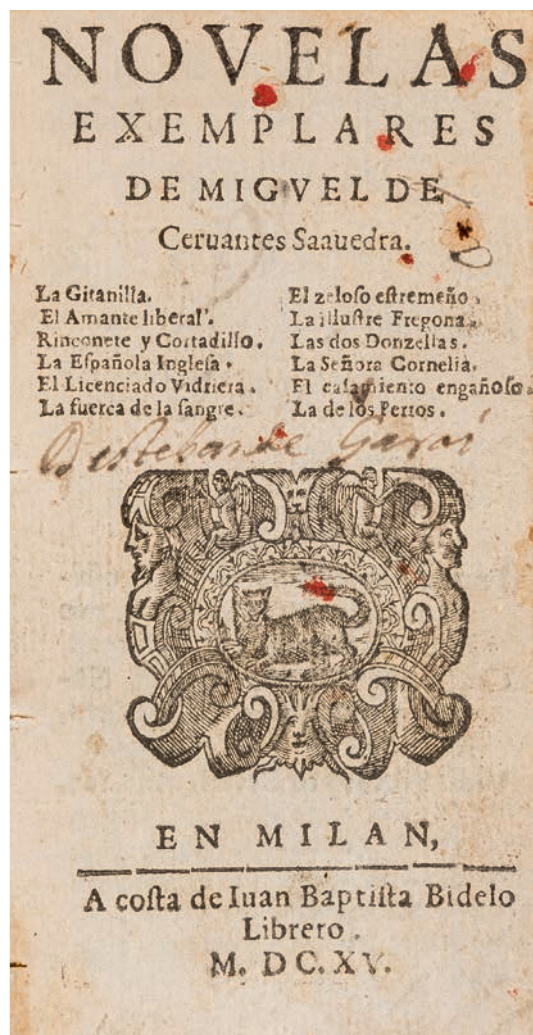 NOVELAS
EXEMPLARES
DE MIGVEL DE
Ceruantes Saauedra.
La Gitanilla.
El Amante liberal.
Rinconete y Cortadillo.
La Española Inglesa.
El Licenciado Vidriera.
La fuerca de la sangre.
El zeloso estremeño,
La illustre Fregona.
Las dos Donzellas.
La Señora Cornelia.
El casamiento engañoso.
La de los Perros.
EN MILAN,
A costa de Iuan Baptista Bidelo
Librero.
M. DC. XV.